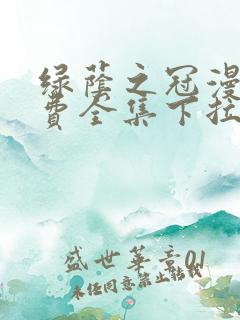 绿荫之冠漫
费全集下拉
盛世华章01
未经同意禁止转载